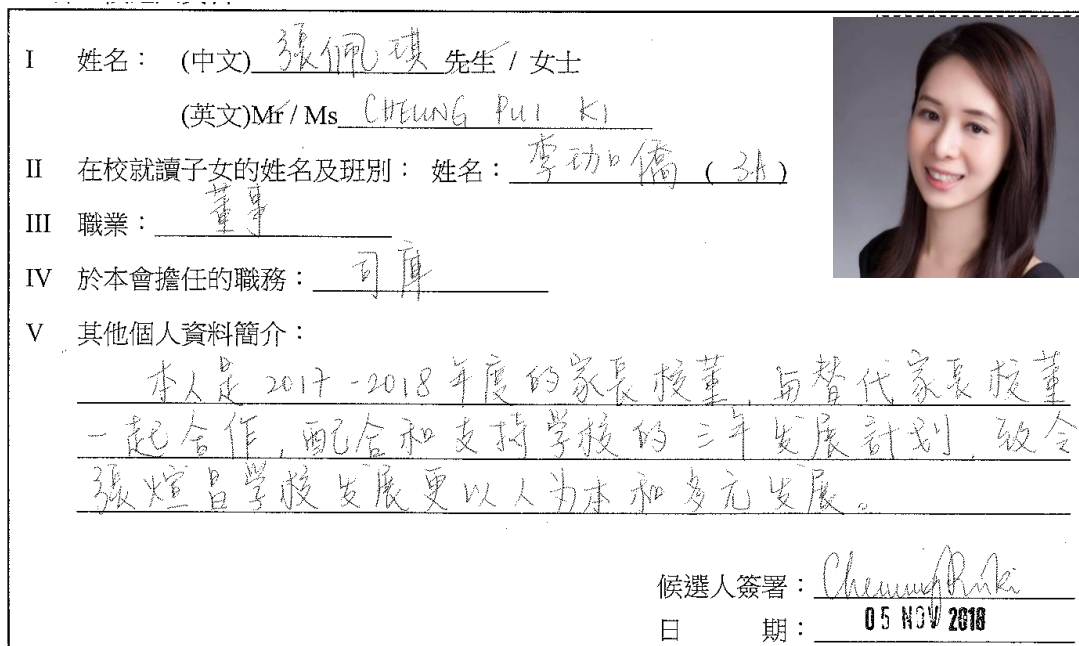 I 姓名： (中文) 張佩琪 先生 / 女士
(英文)Mr / Ms CHEUNG PUI KI
II 在校就讀子女的姓名及班別： 姓名： 李 僑 ( 3A )
III 職業： 董事
IV 於本會擔任的職務： 司庫
V 其他個人資料簡介：
本人是 2017-2018 年度的家長校董, 与替代家長校董
一起合作, 配合和支持学校的三年发展計划, 致令
張煊昌学校发展更以人为本和多元发展。
候選人簽署： Cheung Pui Ki
日 期： 05 NOV 2018